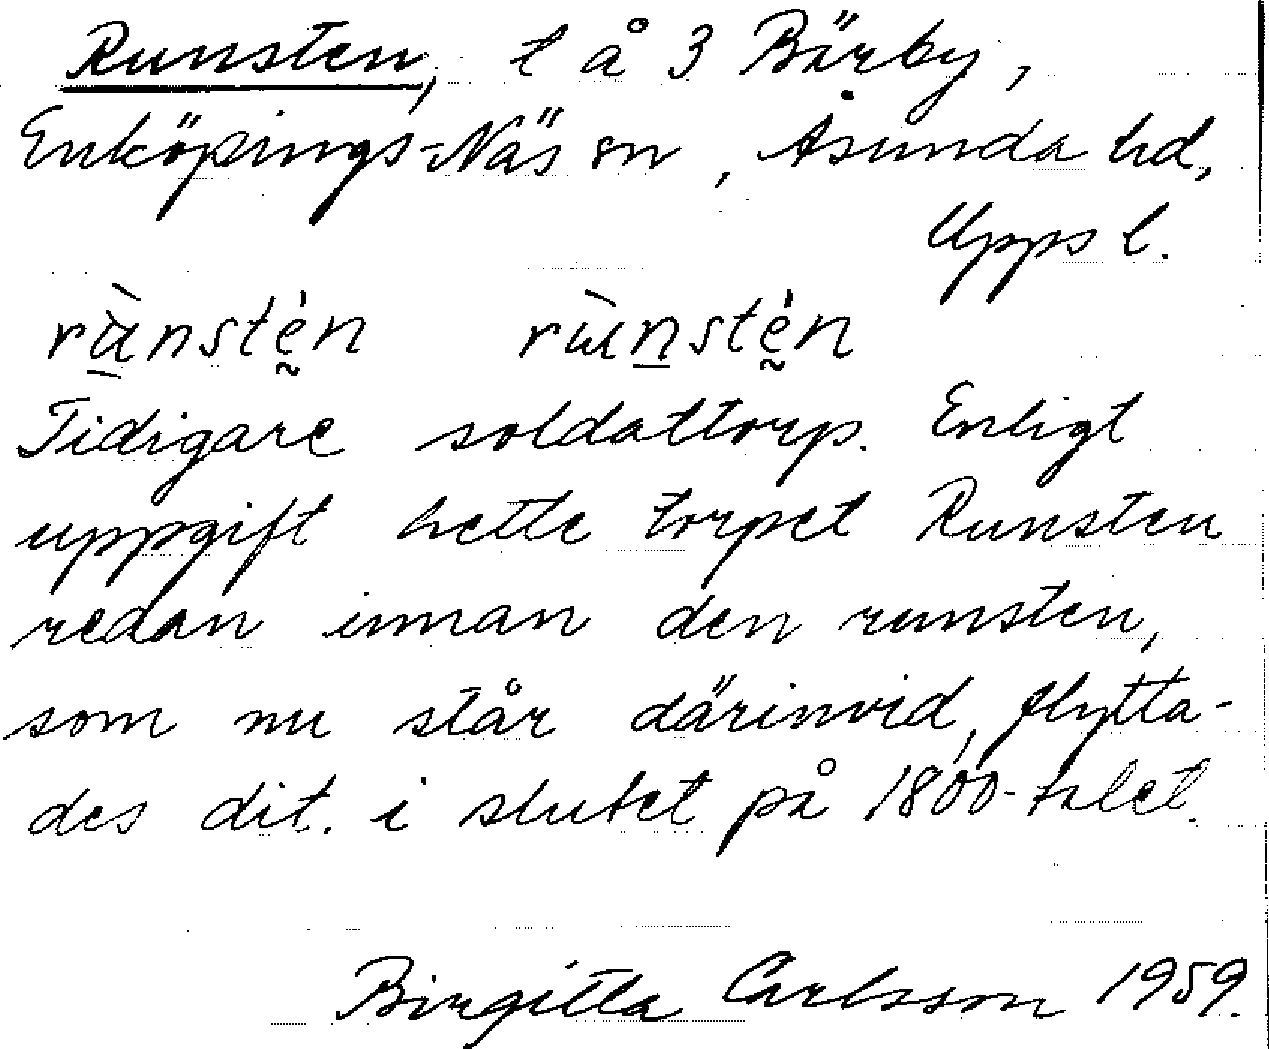 Runsten, t å 3 Bärby,
Enköpings-Näs sn, Åsunda hd,
Upps l.
rùnsté̖n rùnsté̖n
Tidigare soldattorp. Enligt
uppgift hette torpet Runsten
redan innan den runsten,
som nu står därinvid, flytta-
des dit. i slutet på 1800-talet.
Birgitta Carlsson 1959.